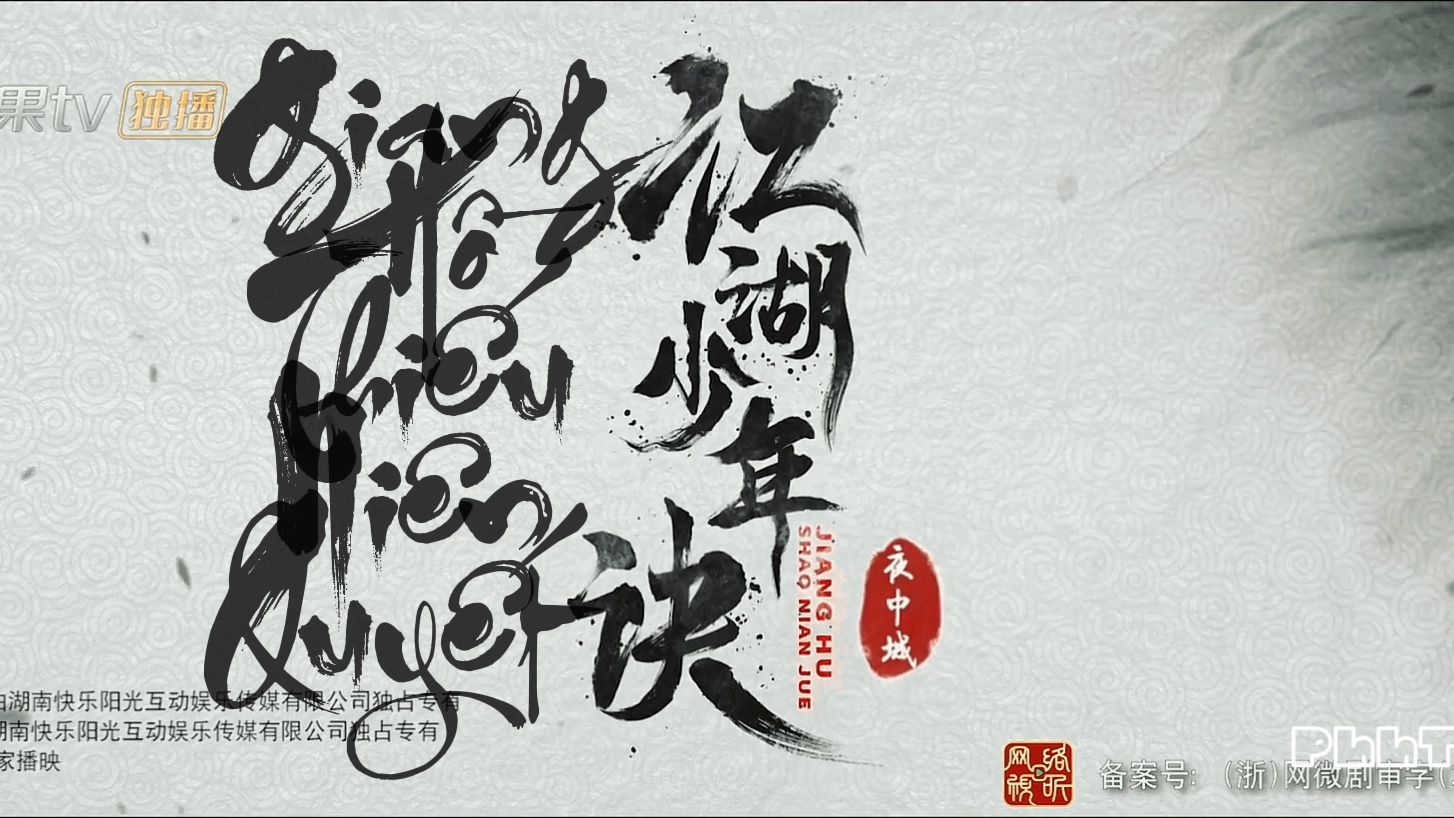 果tv 独播
Giang
Hồ
Thiếu
Niên
Quyết
江湖少年诀
JIANG HU
SHAO NIAN JUE
夜中城
由湖南快乐阳光互动娱乐传媒有限公司独占专有
湖南快乐阳光互动娱乐传媒有限公司独占专有
家播映
网络视听
备案号: (浙)网微剧审字(